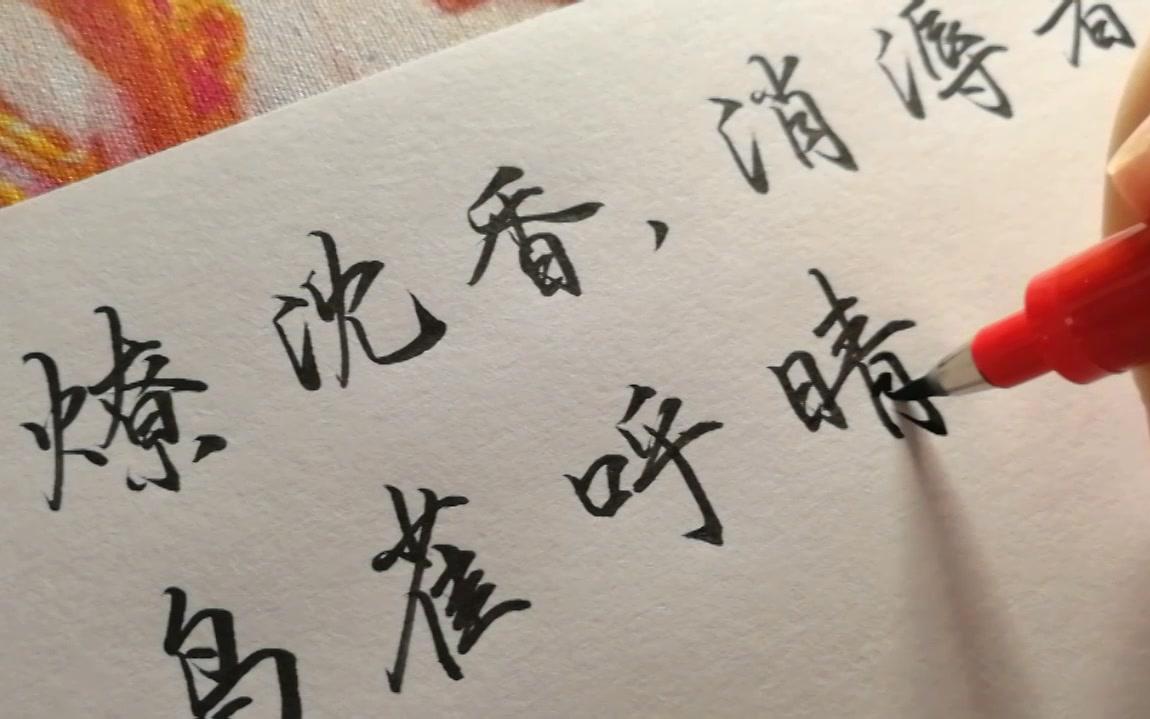 燎沈香，消溽暑
鸟雀呼晴